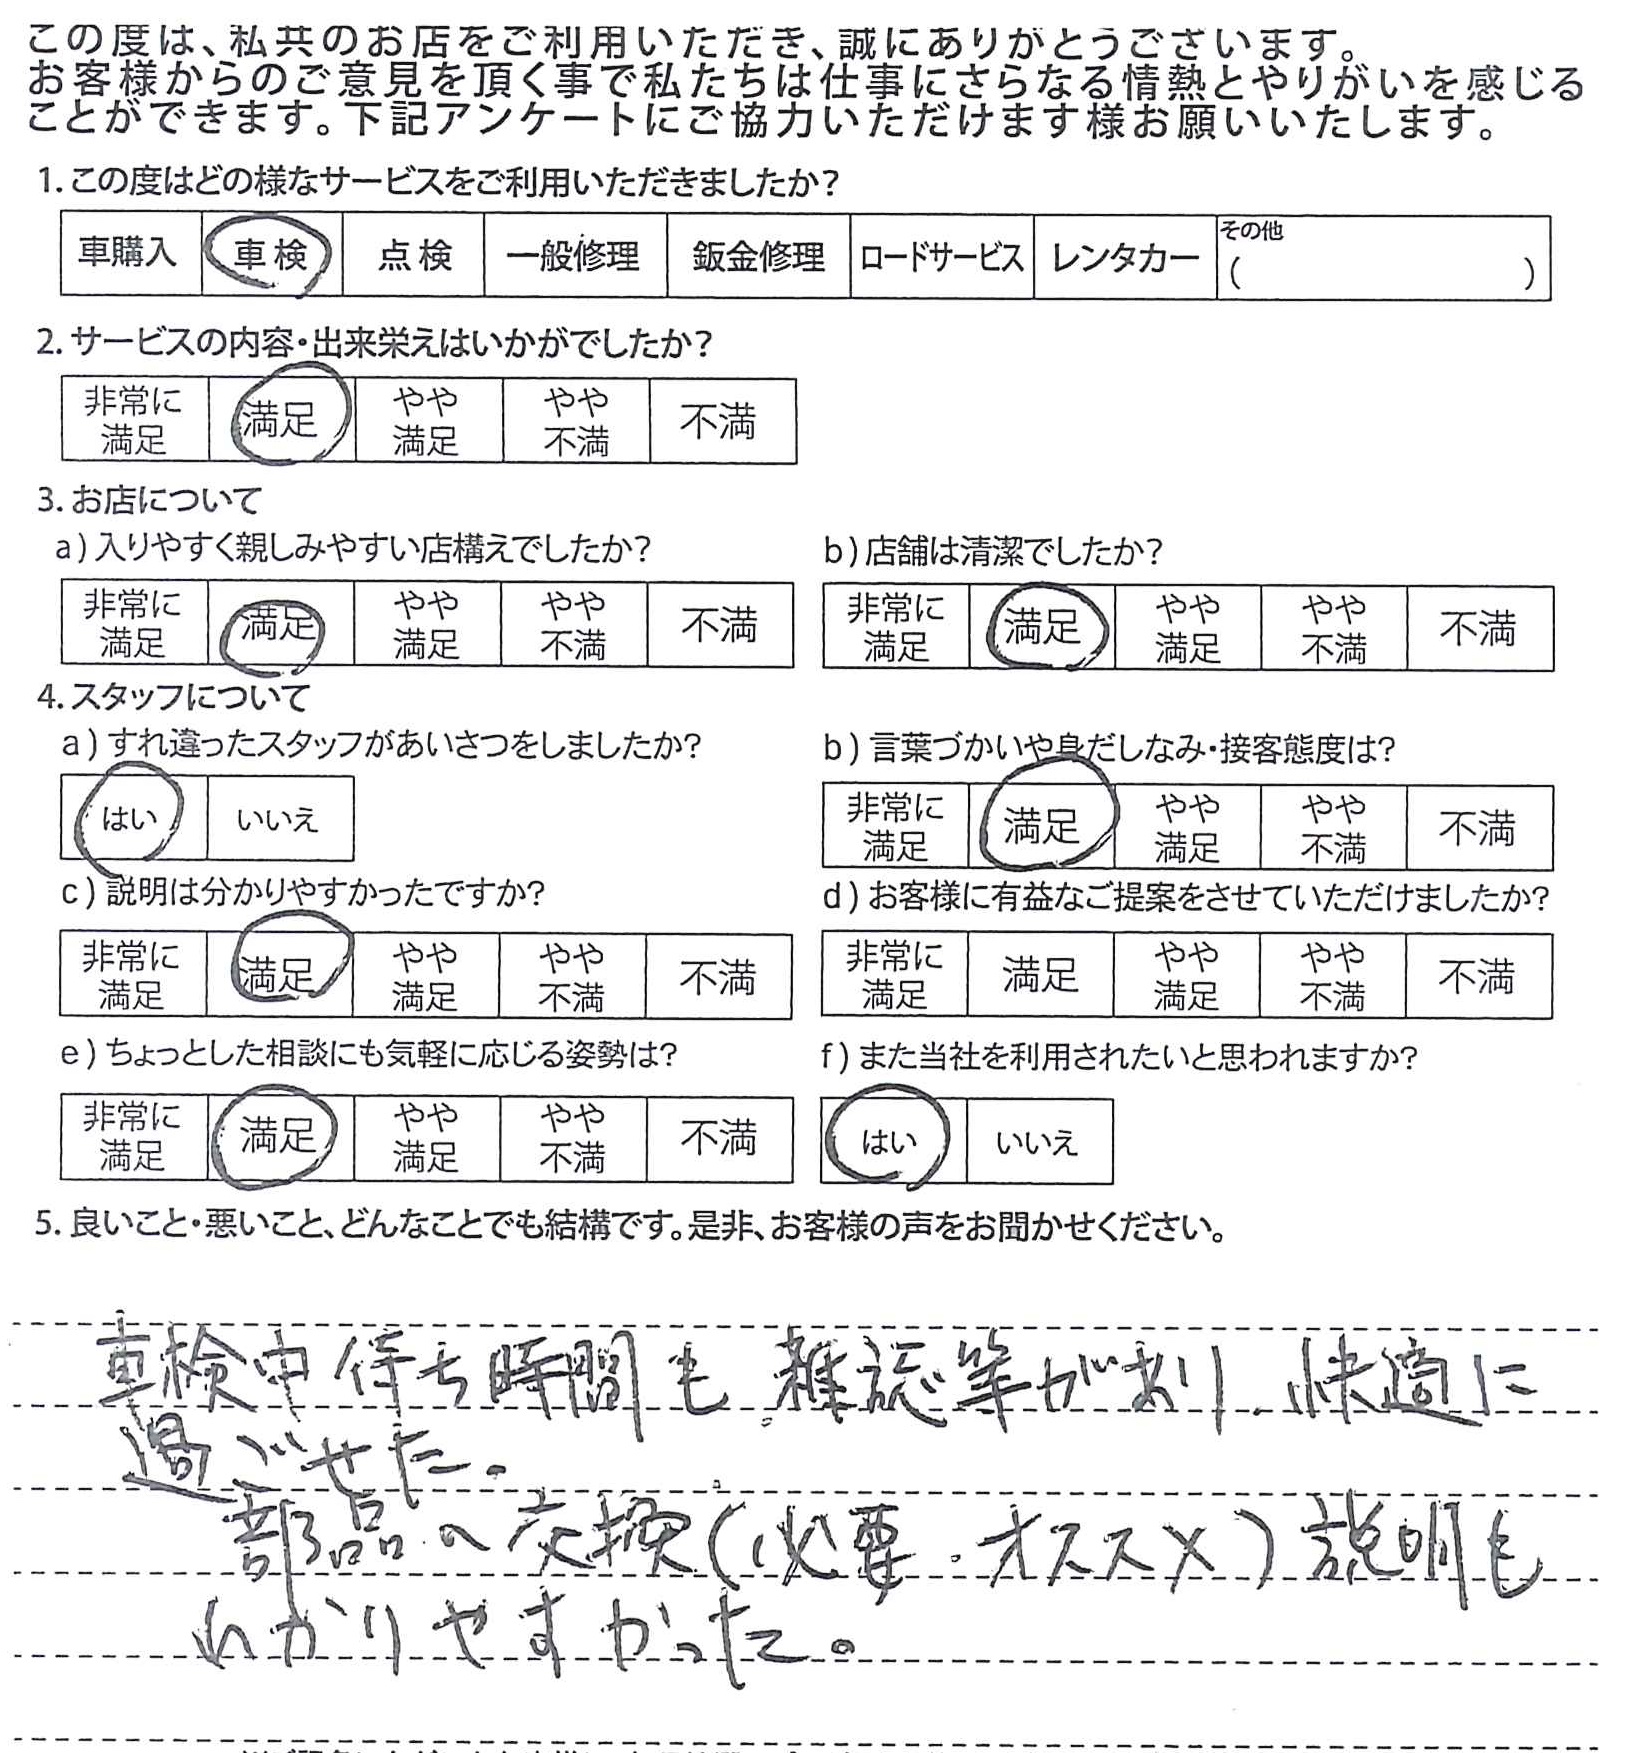 この度は、私共のお店をご利用いただき、誠にありがとうございます。
お客様からのご意見を頂く事で私たちは仕事にさらなる情熱とやりがいを感じる
ことができます。下記アンケートにご協力いただけます様お願いいたします。
1. この度はどの様なサービスをご利用いただきましたか?
車購入 車検 点検 一般修理 鈑金修理 ロードサービス レンタカー その他 ( )
2. サービスの内容・出来栄えはいかがでしたか?
非常に満足 満足 やや満足 やや不満 不満
3. お店について
a) 入りやすく親しみやすい店構えでしたか?
非常に満足 満足 やや満足 やや不満 不満
b) 店舗は清潔でしたか?
非常に満足 満足 やや満足 やや不満 不満
4. スタッフについて
a) すれ違ったスタッフがあいさつをしましたか?
はい いいえ
b) 言葉づかいや身だしなみ・接客態度は?
非常に満足 満足 やや満足 やや不満 不満
c) 説明は分かりやすかったですか?
非常に満足 満足 やや満足 やや不満 不満
d) お客様に有益なご提案をさせていただけましたか?
非常に満足 満足 やや満足 やや不満 不満
e) ちょっとした相談にも気軽に応じる姿勢は?
非常に満足 満足 やや満足 やや不満 不満
f) また当社を利用されたいと思われますか?
はい いいえ
5. 良いこと・悪いこと、どんなことでも結構です。是非、お客様の声をお聞かせください。
車検中待ち時間も雑誌等があり、快適に
過ごせた。
部品の交換(必要・オススメ)説明も
わかりやすかった。